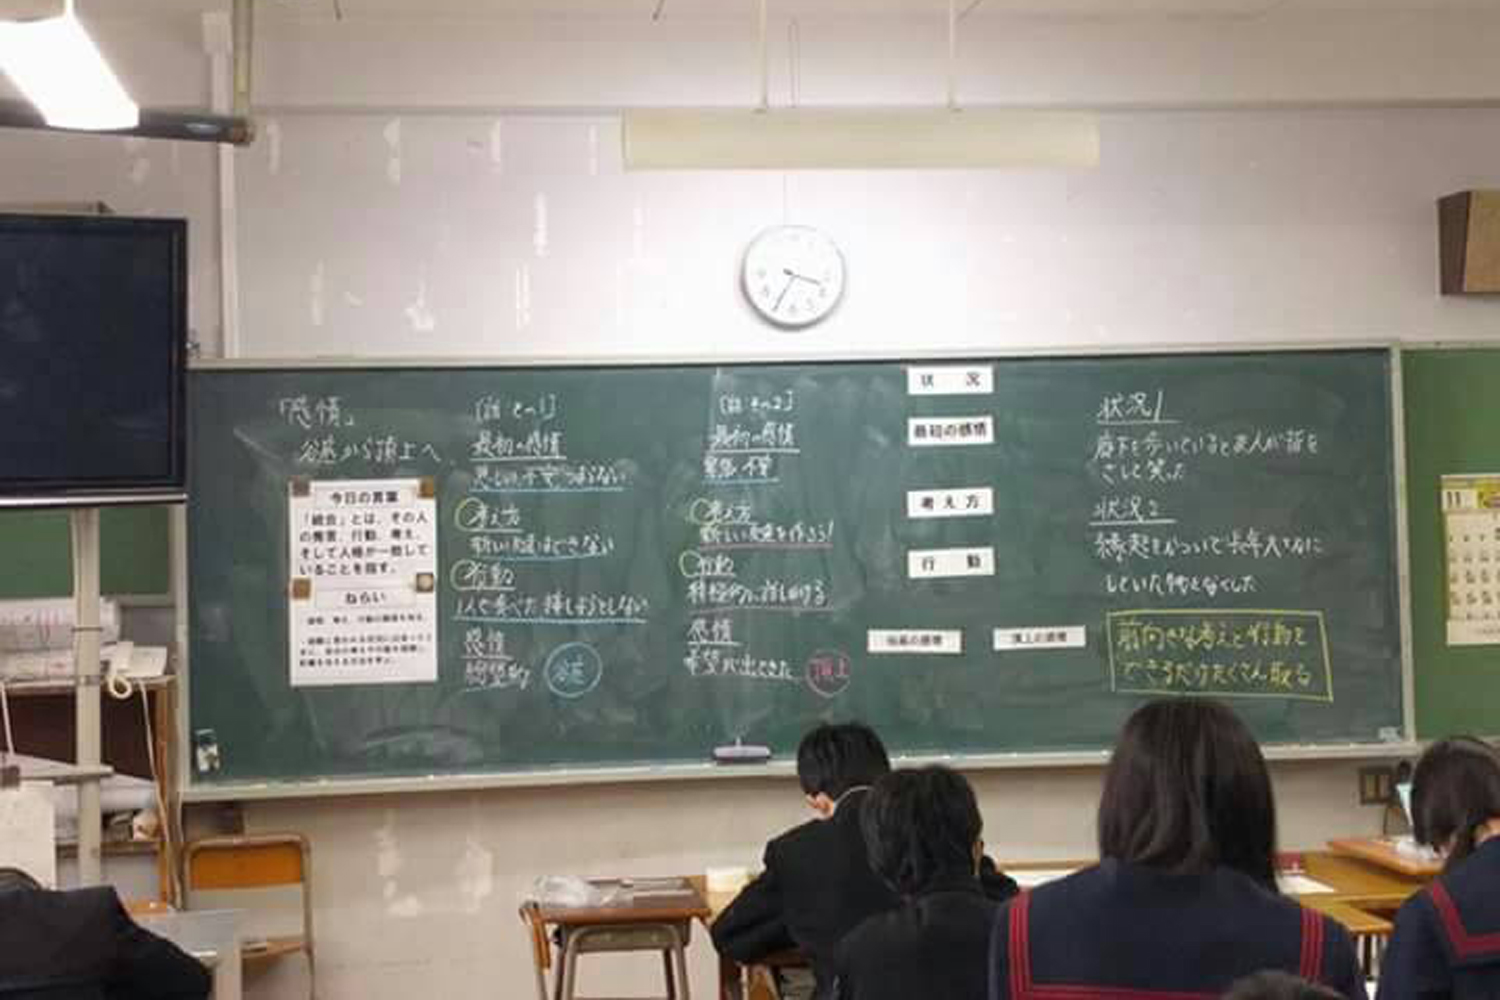 「感情」
谷底から頂上へ
今日の言葉
「統合」とは、その人
の発言、行動、考え、
そして人格が一致して
いることを指す。
ねらい
[話 その1]
最初の感情
悲しい 不安 つまらない
考え方
新しい友達はできない
行動
1人で食べた 話しようとしない
感情
絶望的
谷底
[話 その2]
最初の感情
緊張 不安
考え方
新しい友達を作ろう!
行動
積極的に話しかける
感情
希望が出てきた
頂上
状 況
最初の感情
考え方
行 動
谷底の感情
頂上の感情
状況1
廊下を歩いていると友人が指を
さして笑った
状況2
していた物をなくした
前向きな考えと行動を
できるだけたくさん取る
11